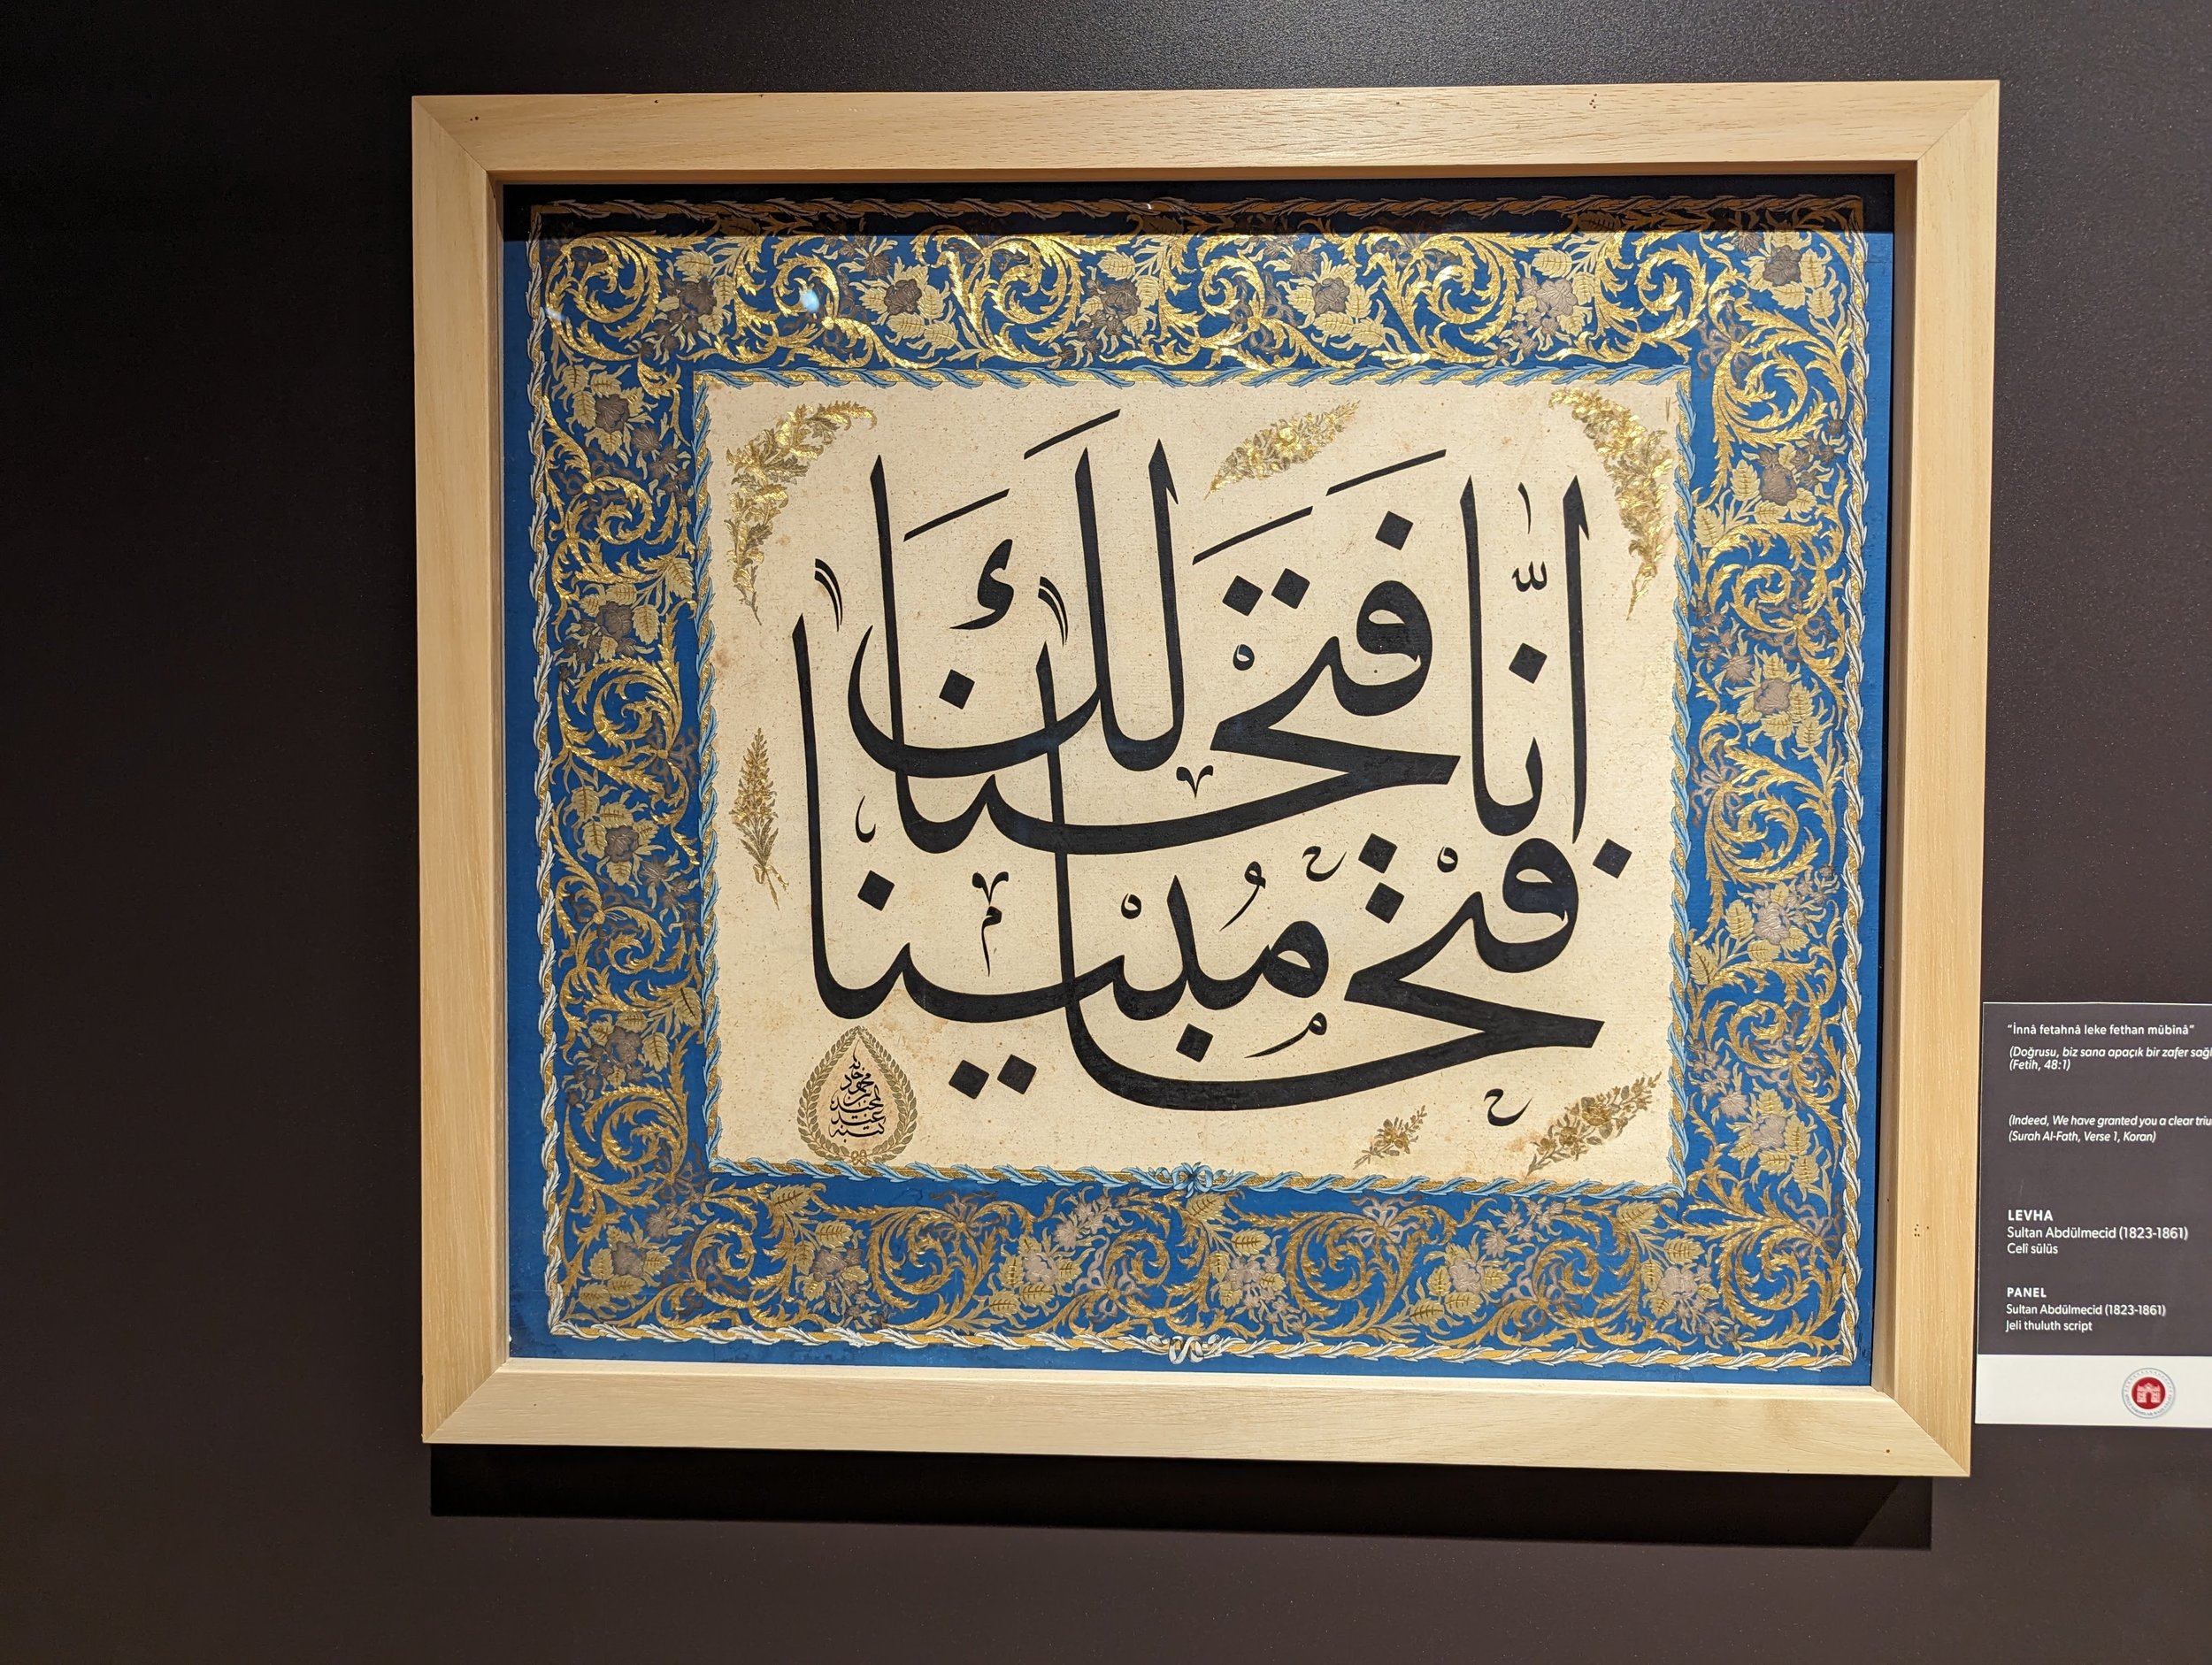 انا فتحنا لك
فتحا مبينا
كتبه
عبد
المجيد
بن
محمود
خان
"İnnâ fetahnâ leke fethan mübinâ"
(Doğrusu, biz sana apaçık bir zafer
(Fetih, 48:1)
(Indeed, We have granted you a clear
(Surah Al-Fath, Verse 1, Koran)
LEVHA
Sultan Abdülmecid (1823-1861)
Celî sülüs
PANEL
Sultan Abdülmecid (1823-1861)
Jeli thuluth script